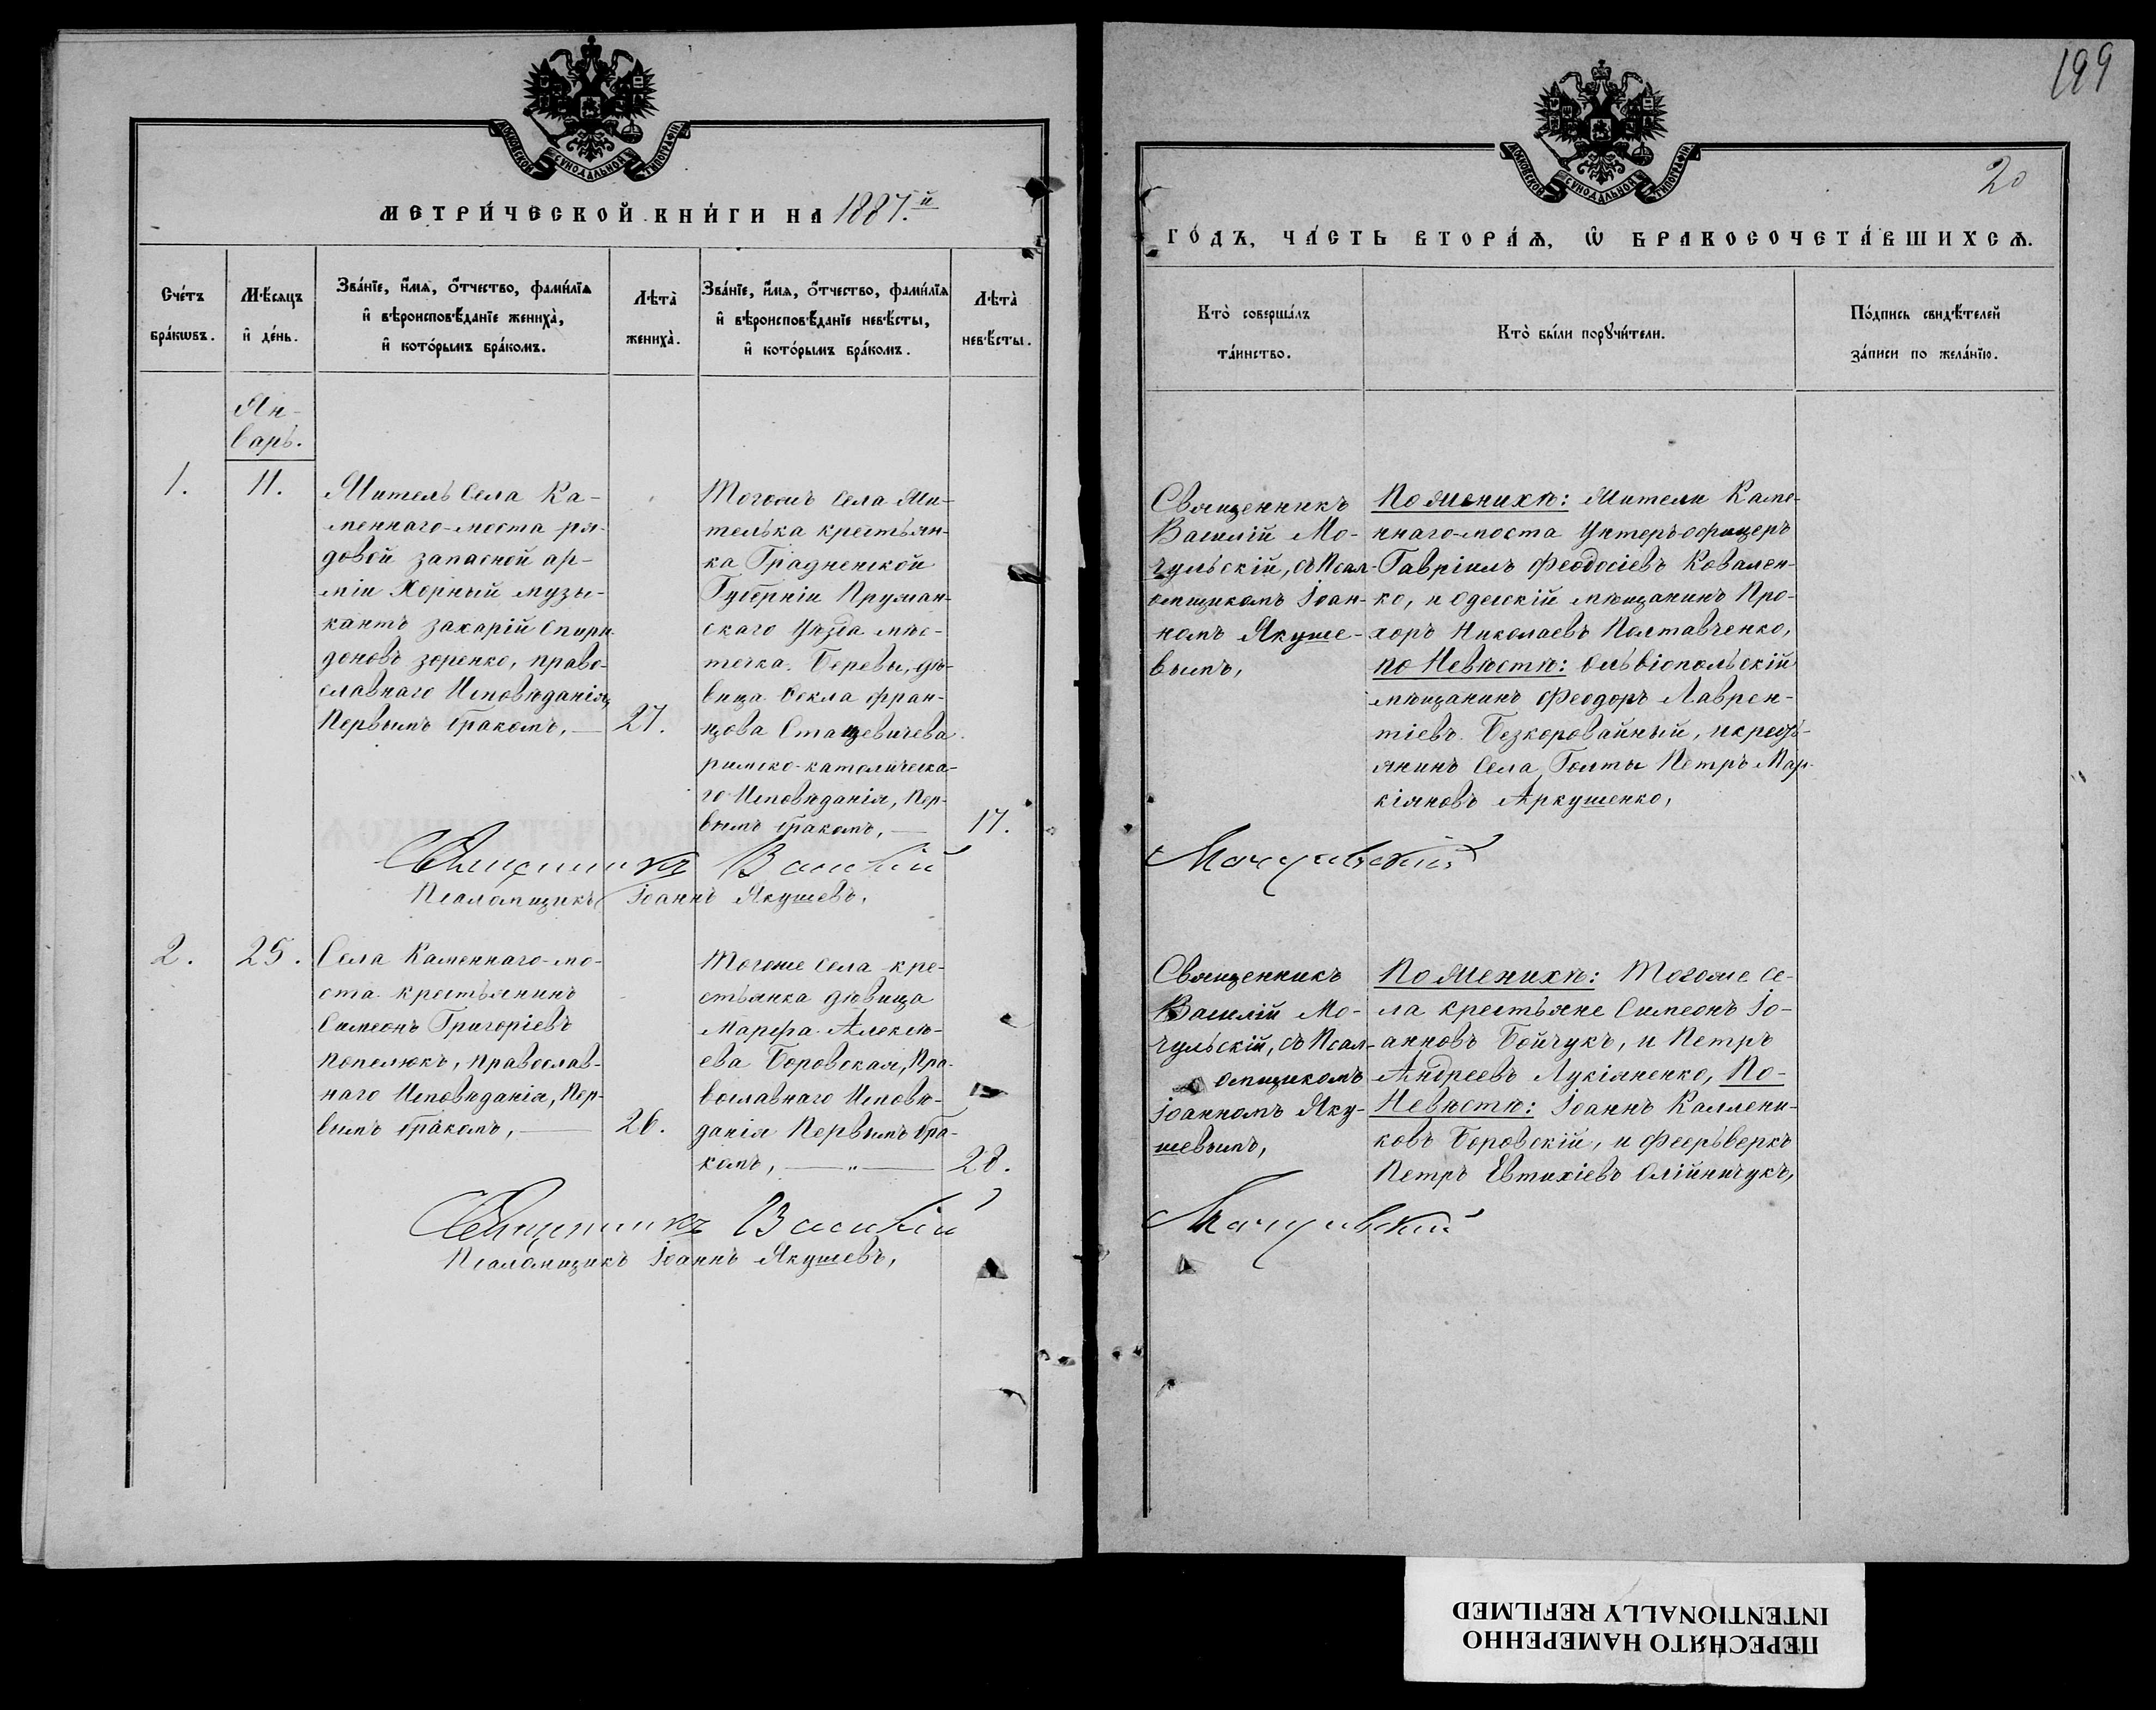 199
20
МОСКОВСКОЙ СѴНОДАЛЬНОЙ ТИПОГРАФІИ.
МЕТРИ́ЧЕСКОЙ КНИ́ГИ НА 1887.й
Сче́тъ бра́кωвъ.
Мѣ́сяцъ и҆ де́нь.
Зва́нїе, и҆́мя, ѻ҆́тчество, фами́лїя
и҆ вѣроисповѣ́данїе жениха̀,
и҆ кото́рымъ бра́комъ.
Лѣта̀ жениха̀.
Зва́нїе, и҆́мя, ѻ҆́тчество, фами́лїя
и҆ вѣроисповѣ́данїе невѣ́сты,
и҆ кото́рымъ бра́комъ.
Лѣта̀ невѣ́сты.
Ян-
варь.
1.
11.
Житель села Ка-
меннаго-моста ря-
довой запасной ар-
міи Хорный музы-
кантъ Захарій Спири-
доновъ Зоренко, право-
славнаго Исповѣданія,
Первымъ бракомъ, —
27.
Тогожъ села Жи-
телька крестьян-
ка Градненской
Губерніи Пружан-
скаго Уѣзда мѣс-
течка Беревы, дѣ-
вица Ѳекла Фран-
цова Сташевичева
римско-католическа-
го Исповѣданія, Пер-
вымъ бракомъ, —
17.
Священникъ Василій
Псаломщикъ Іоаннъ Якушевъ,
2.
25.
Села Каменнаго-мо-
ста крестьянинъ
Симеонъ Григоріевъ
Попелюкъ, Православ-
наго Исповѣданія, Пер-
вымъ бракомъ, —
26.
Тогоже села кре-
стьянка дѣвица
Марѳа Алексѣ-
ева Боровская, Пра-
вославнаго Исповѣ-
данія Первымъ бра-
комъ, — „ —
28.
Священникъ Василій
Псаломщикъ Іоаннъ Якушевъ,
МОСКОВСКОЙ СѴНОДАЛЬНОЙ ТИПОГРАФІИ.
ГО́ДЪ, ЧА́СТЬ ВТОРА́Я, Ѽ БРАКОСОЧЕТА́ВШИХСЯ.
Кто̀ соверша́лъ
та́инство.
Кто̀ бы́ли порꙋчи́тели.
По́дпись свидѣ́телей
за́писи по жела́нїю.
Священникъ
Василій Мо-
чульскій, съ Псал-
омщикомъ Іоан-
номъ Якуше-
вымъ,
По Женихѣ: Жители Каме-
ннаго-моста Унтеръ-офицеръ
Гавріилъ Феодосіевъ Ковален-
ко, и Одесскій мѣщанинъ Про-
хоръ Николаевъ Полтавченко,
по Невѣстѣ: Ольвіопольскій
мѣщанинъ Феодоръ Лаврен-
тіевъ Безкоровайный, и кресть-
янинъ Села Голты Петръ Мар-
кіяновъ Аркушенко,
Мочульскій
Священникъ
Василій Мо-
чульскій, съ Псал-
омщикомъ
Іоанномъ Яку-
шевымъ,
По Женихѣ: Тогоже се-
ла крестьяне Симеонъ Іо-
анновъ Бойчукъ, и Петръ
Андреевъ Лукіяненко, По-
Невѣстѣ: Іоаннъ Каллени-
ковъ Боровскій, и Феерьверкъ
Петръ Евтихіевъ Олійничукъ,
Мочульскій
ПЕРЕСНЯТО НАМЕРЕННО
INTENTIONALLY REFILMED